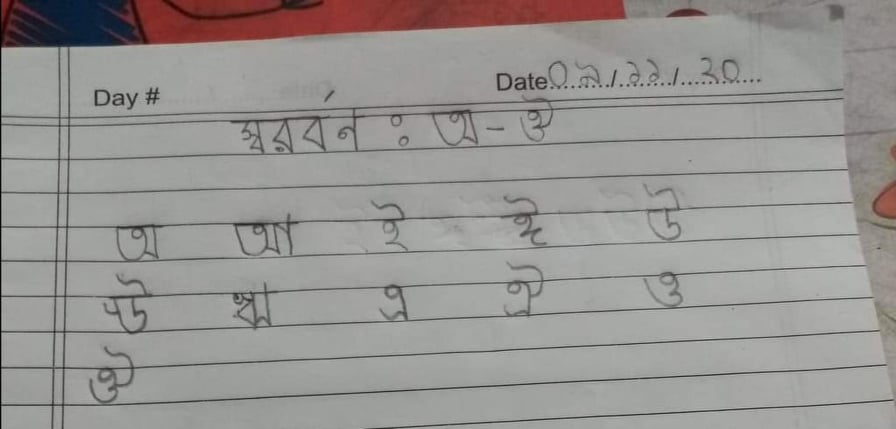 Day # Date ০২/১১/২০
স্বরবর্ন : অ - ঔ
অ আ ই ঈ উ
ঊ ঋ এ ঐ ও
ঔ